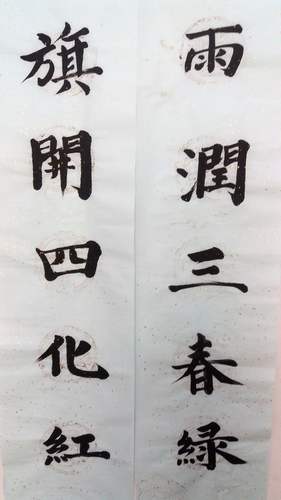 雨潤三春緑
旗開四化紅